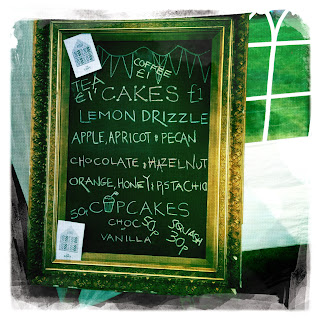 COFFEE
£1
TEA
£1
CAKES £1
LEMON DRIZZLE
APPLE, APRICOT & PECAN
CHOCOLATE & HAZELNUT
ORANGE, HONEY & PISTACHIO
50p CUPCAKES
CHOC 50p SQUASH
& 30p
VANILLA